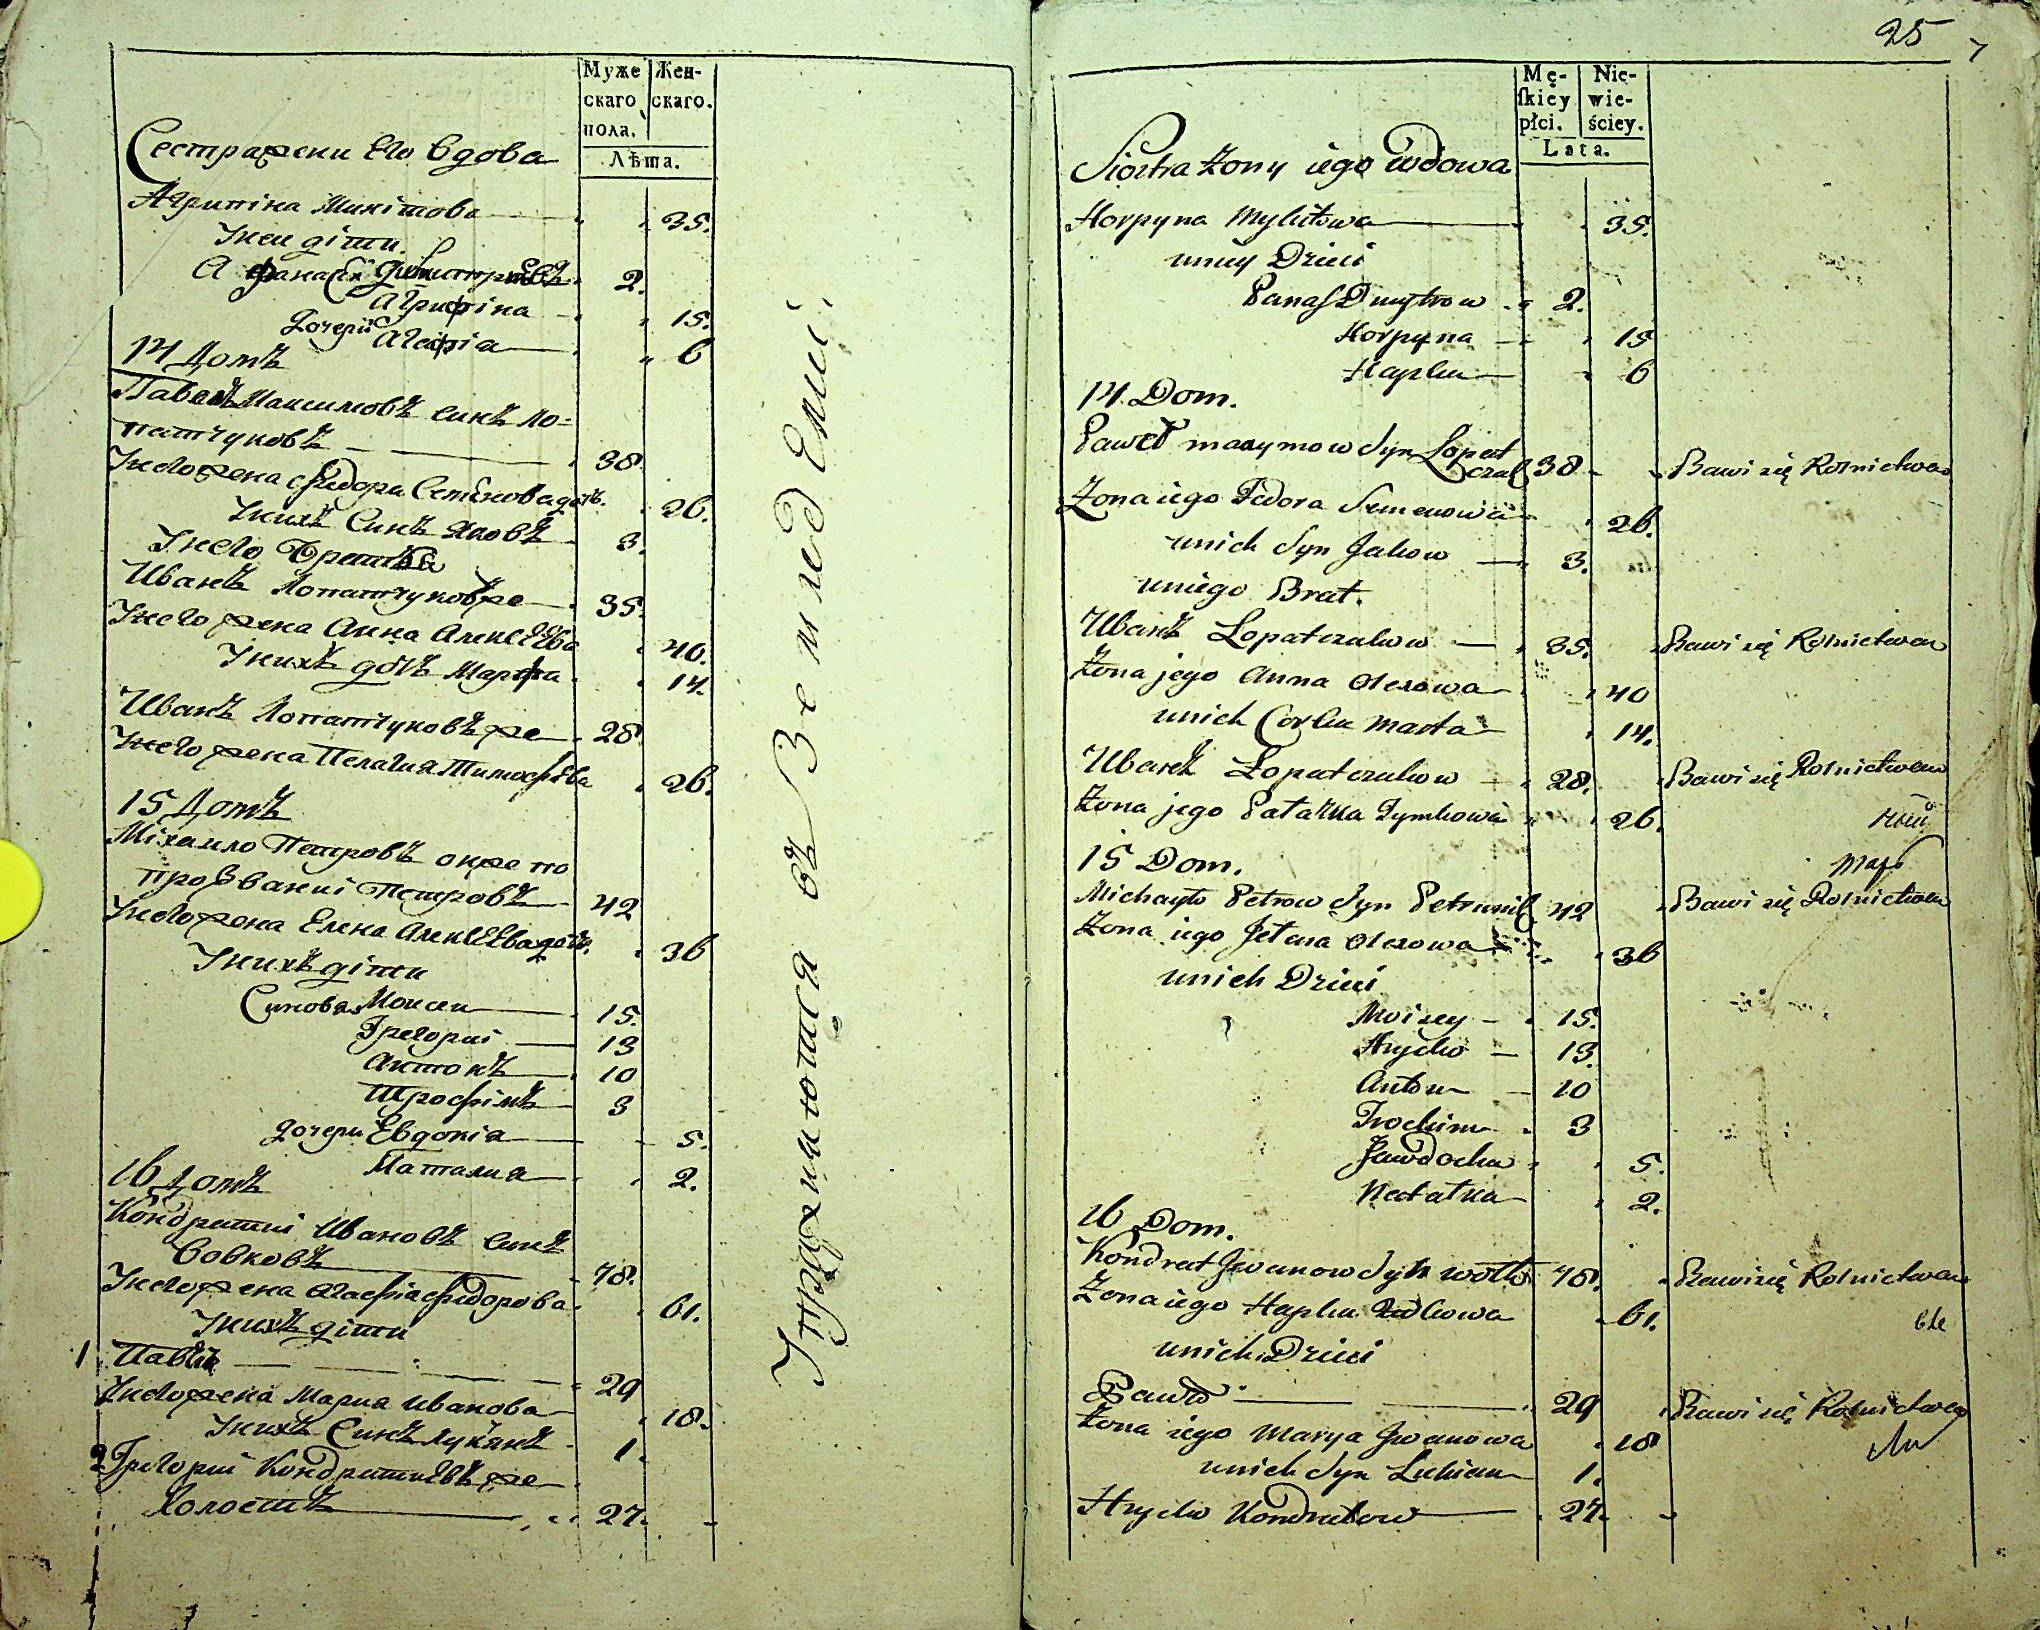 Муже
скаго
пола.
Жен-
скаго.
Лѣта.
Сестра жени Его вдова
Агрипіна Микітова 35.
У неи діти
Афанасіи Димитріевъ 2.
Агрипіна 15.
дочери Агафіа 6
14 Домъ
Павелъ Максимовъ синъ Ло-
патчуковъ 38
У него жена Федора Семенова дочъ. 26.
У нихъ Синъ Яковъ 3.
У него Брати
Иванъ Лопатчуковъ же 35
У него жена Анна Алексѣева 40.
У нихъ дочъ Марфа 14.
Иванъ Лопатчуковъ же 28
У него жена Пелагия Тимофѣева 26.
15 Домъ
Міхаило Петровъ онже по
прозванкі Петровъ 42
У него жена Елена Алексѣева дочъ. 36
У нихъ діти
Синова Моисеи 15.
Грегориі 13
Антонъ 10
Трофімъ 3
дочери Евдокіа 5.
Наталия 2.
16 Домъ
Кондратиі Ивановъ синъ
Вовковъ 78.
У него жена Агафіа Федорова 61.
У нихъ діти
1 Павелъ 29
У него жена Мария Иванова 18.
У нихъ Синъ Лукянъ 1.
2 Грегориі Кондратиевъ же
Холостъ 27.
Упражнюются въ Земледелиі.
25
Mę-
skiey
płci.
Nie-
wie-
ściey.
Lata.
Siostra żony iego wdowa
Horpyna Mykitowa 35.
u niey Dzieci
Panas Dmytrow 2.
Horpyna 15
Hapka 6
14 Dom.
Paweł maxymow Syn Lopat
czuk 38 Bawi się Rolnictwem
Żona iego Fedora Semenowa 26.
u nich Syn Jakow 3.
u niego Brat.
Иванъ Lopatczukow 35. Bawi się Rolnictwem
Żona jego Anna Olexowa 40
u nich Corka Marta 14.
Иванъ Lopatczukow 28. Bawi się Rolnictwem
Żona jego Pałażka Tymkowa 26.
15 Dom.
Michayło Petrow Syn Petrunik 42 Bawi się Rolnictwem
Żona iego Jelena Olexowa 36
u nich Dzieci
Moisey 15.
Hrycko 13.
Anton 10
Trochim 3
Jawdocha 5.
Natalka 2.
16 Dom.
Kondrat Jwanow Syn Wołk 78. Bawi się Rolnictwem
Żona iego Hapka 61.
u nich Dzieci
Pawło 29 Bawi się Rolnictwem
Żona iego Marya Jwanowa 18
u nich Syn Lukian 1.
Hrycko Kondratow 27.